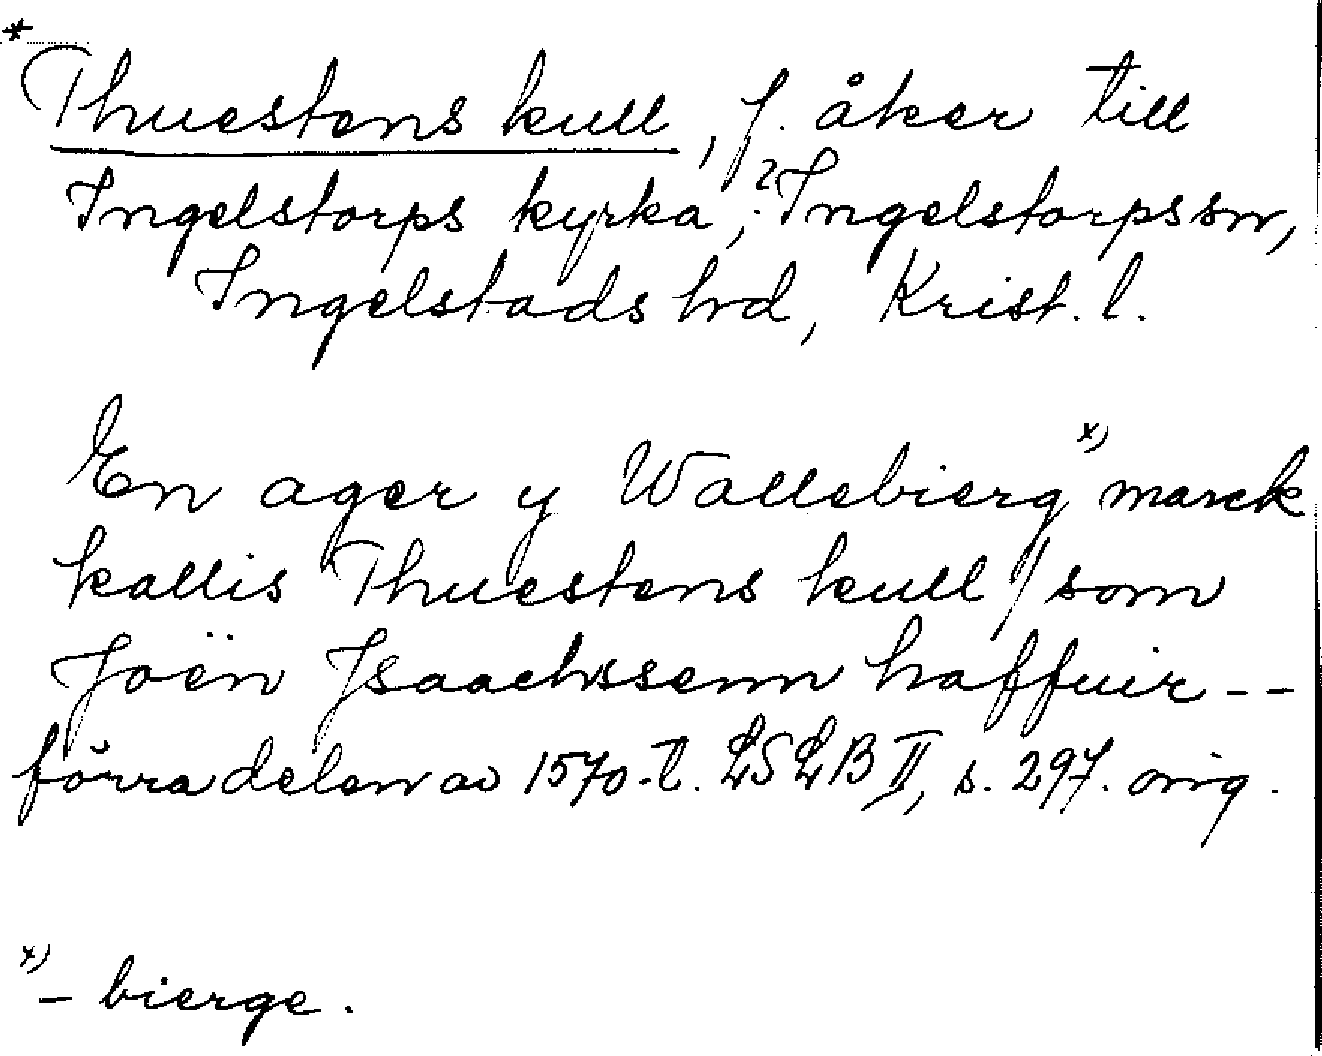 *
Thuestens kull, f. åker till
Ingelstorps kyrka, ?Ingelstorps sn,
Ingelstads hd, Krist. l.
En ager y Wallebierg x) marck
kallis Thuestens kull / som
Joën Isaachssenn haffuir --
förra delen av 1570-t. LSLB II, s. 297. orig.
x) - bierge.